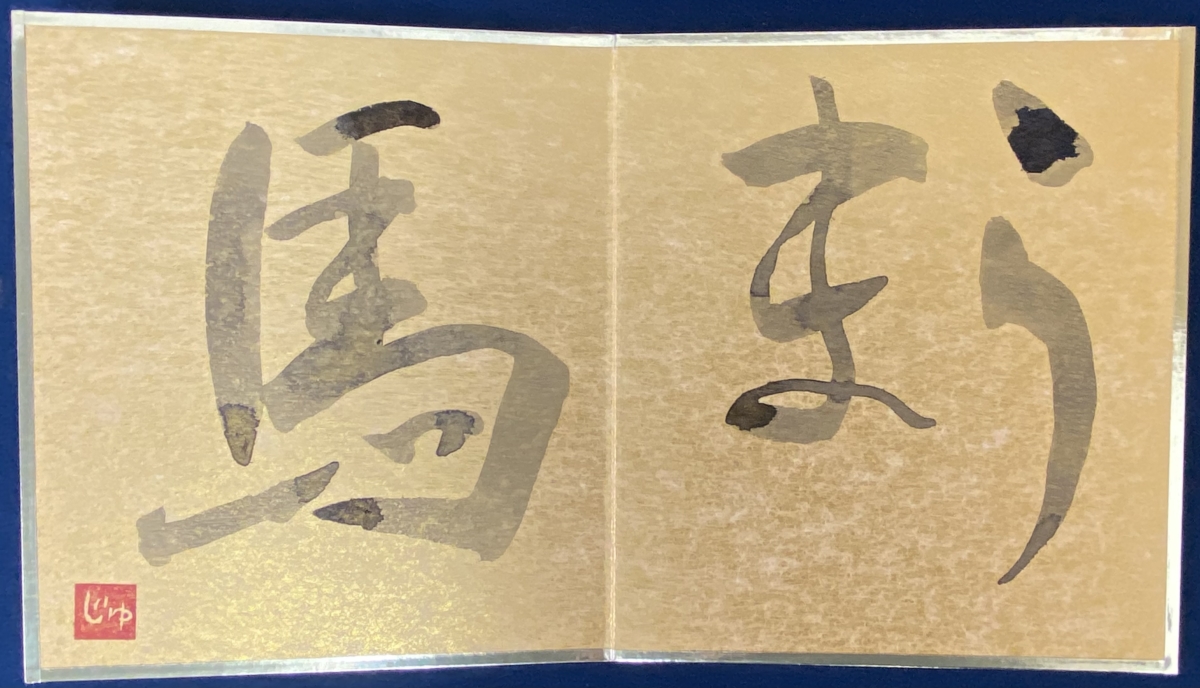 うま
馬
じゅ